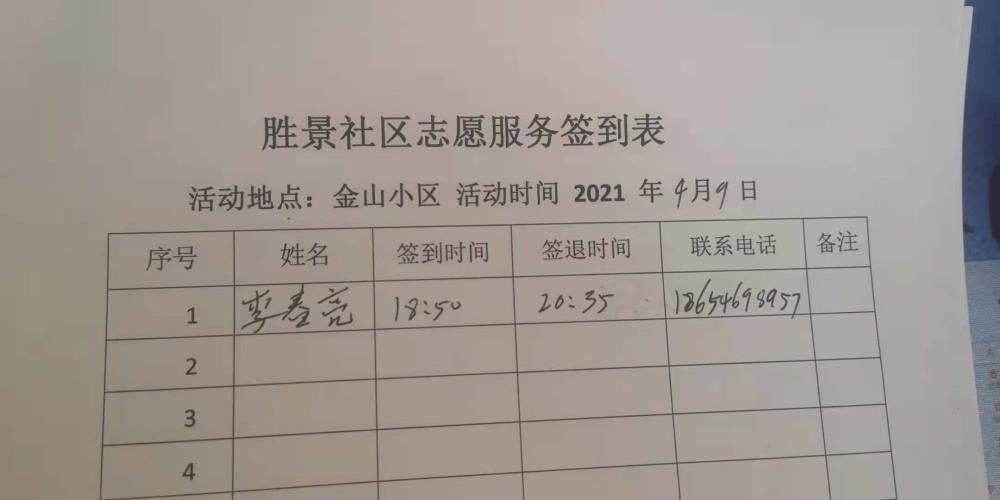 胜景社区志愿服务签到表
活动地点：金山小区 活动时间 2021 年 4月9日
序号 姓名 签到时间 签退时间 联系电话 备注
1 李春亮 18:50 20:35 18654698957
2
3
4